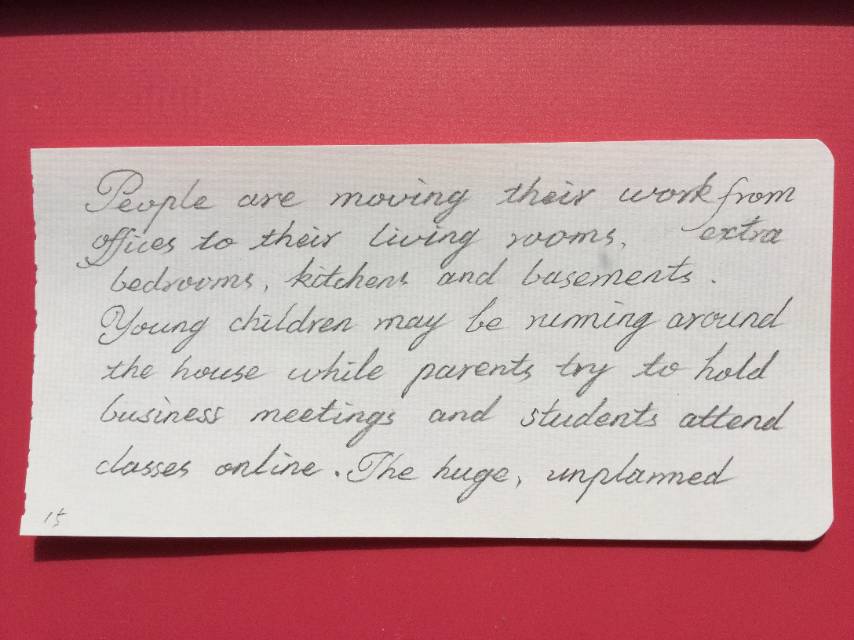 People are moving their work from
offices to their living rooms, extra
bedrooms, kitchens and basements.
Young children may be running around
the house while parents try to hold
business meetings and students attend
classes online. The huge, unplanned
15